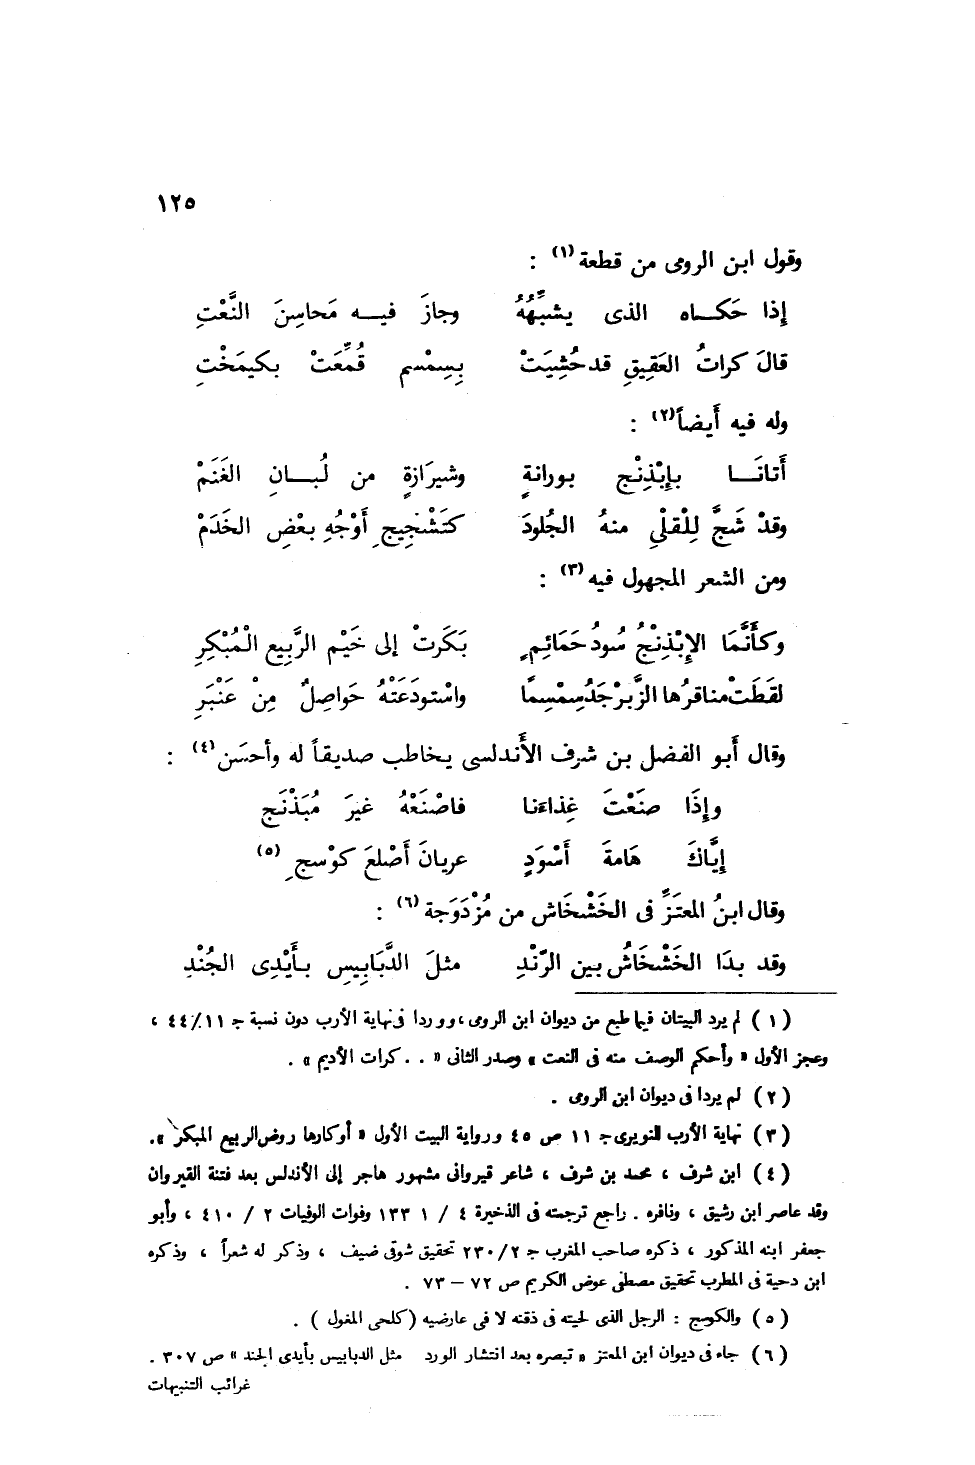 ١٢٥
وقول ابن الرومى من قطعة(١) :
إِذا حَكــاه الذى يشبِّهُهُ وجازَ فيــه مَحاسِنَ النَّعْتِ
قالَ كراتُ العَقِيقِ قد حُشِيَتْ بِسِمْسم قُمِّعَتْ بكيمَخْتِ
وله فيه أَيضاً(٢) :
أَتانَــا بـإِبْذِنْج بورانةٍ وشيرَازةٍ من لُبـانِ الغَنَمْ
وقدْ شَجَّ لِلْقلْىِ منهُ الجُلودَ كتَشْنِجيجِ أَوْجُهِ بعْضِ الخَدَمْ
ومن الشعر المجهول فيه(٣) :
وكأَنَّمَا الإِبْذِنْجُ سُودُ حَمَائِمٍ بَكَرَتْ إلى خَيْم الرَّبِيع الْمُبْكِرِ
لقَطَتْ مناقرُها الزَّبرْجَدُ سِمْسِمًا واسْتودَعَتْهُ حَواصِلٌ مِنْ عَنْبَرِ
وقال أَبو الفضل بن شرف الأَندلسى يخاطب صديقاً له وأحسَن(٤) :
وإِذَا صنَعْتَ غِذاءَنا فاصْنَعْهُ غيرَ مُبَذْنَجِ
إِيَّاكَ هَامةَ أَسْوَدٍ عريانَ أَصْلعَ كوْسجِ (٥)
وقال ابنُ المعتَزِّ فى الخَشْخَاش من مُزْدَوَجة(٦) :
وقد بدَا الخَشْخَاشُ بين الرّنْدِ مثلَ الدَّبَابِيسِ بأَيْدِى الجُنْدِ
(١) لم يرد البيتان فيما طبع من ديوان ابن الرومى ، ووردا فى نهاية الأرب دون نسبة ج ١١/ ٤٤ ،
وعجز الأول « وأحكم الوصف منه فى النعت » وصدر الثانى « . . كرات الأديم » .
(٢) لم يردا فى ديوان ابن الرومى .
(٣) نهاية الأرب للنويرى ج ١١ ص ٤٥ ورواية البيت الأول « أوكارها روض الربيع المبكر » .
(٤) ابن شرف ، محمد بن شرف ، شاعر قيروانى مشهور هاجر إلى الأندلس بعد فتنة القيروان
وقد عاصر ابن رشيق ، ونافره . راجع ترجمته فى الذخيرة ٤ / ١ ١٣٣ وفوات الوفيات ٢ / ٤١٠ ، وأبو
جعفر ابنه المذكور ، ذكره صاحب المغرب ج ٢/ ٢٣٠ تحقيق شوقى ضيف ، وذكر له شعراً ، وذكره
ابن دحية فى المطرب تحقيق مصطفى عوض الكريم ص ٧٢ – ٧٣ .
(٥) والكوسج : الرجل الذى لحيته فى ذقنه لا فى عارضيه (كلحى المغول ) .
(٦) جاء فى ديوان ابن المعتز « تبصره بعد انتشار الورد مثل الدبابيس بأيدى الجند » ص ٣٠٧ .
غرائب التنبيهات